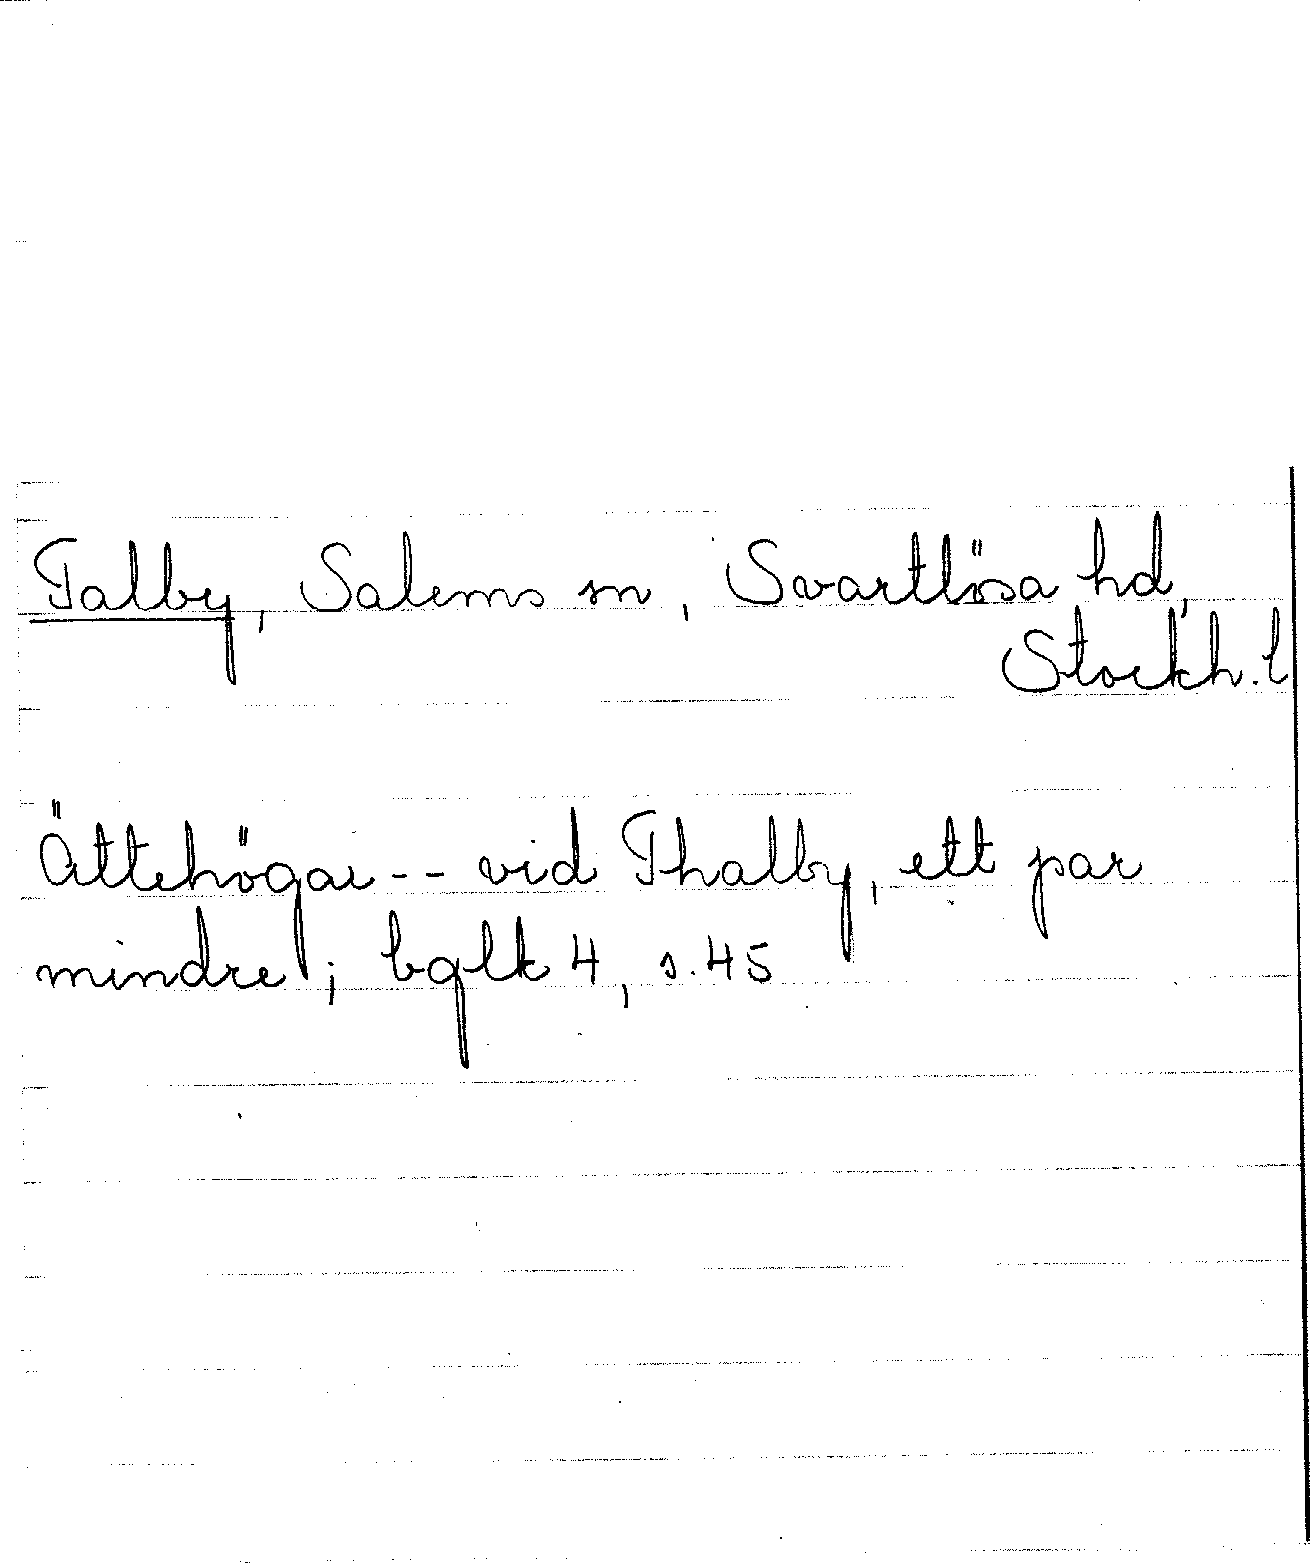 Talby, Salems sn, Svartlösa hd,
Stockh. l
Ättehögar -- vid Thalby, ett par
mindre; bqlk 4, s. 45